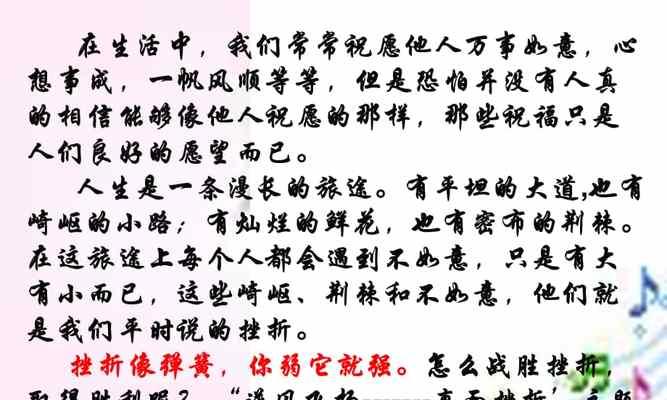 在生活中，我们常常祝愿他人万事如意，心
想事成，一帆风顺等等，但是恐怕并没有人真
的相信能够像他人祝愿的那样，那些祝福只是
人们良好的愿望而已。
人生是一条漫长的旅途。有平坦的大道,也有
崎岖的小路；有灿烂的鲜花，也有密布的荆棘。
在这旅途上每个人都会遇到不如意，只是有大
有小而已，这些崎岖、荆棘和不如意，他们就
是我们平时说的挫折。
挫折像弹簧，你弱它就强。怎么战胜挫折，
取得胜利呢？“逆风飞扬-------直面挫折’主题